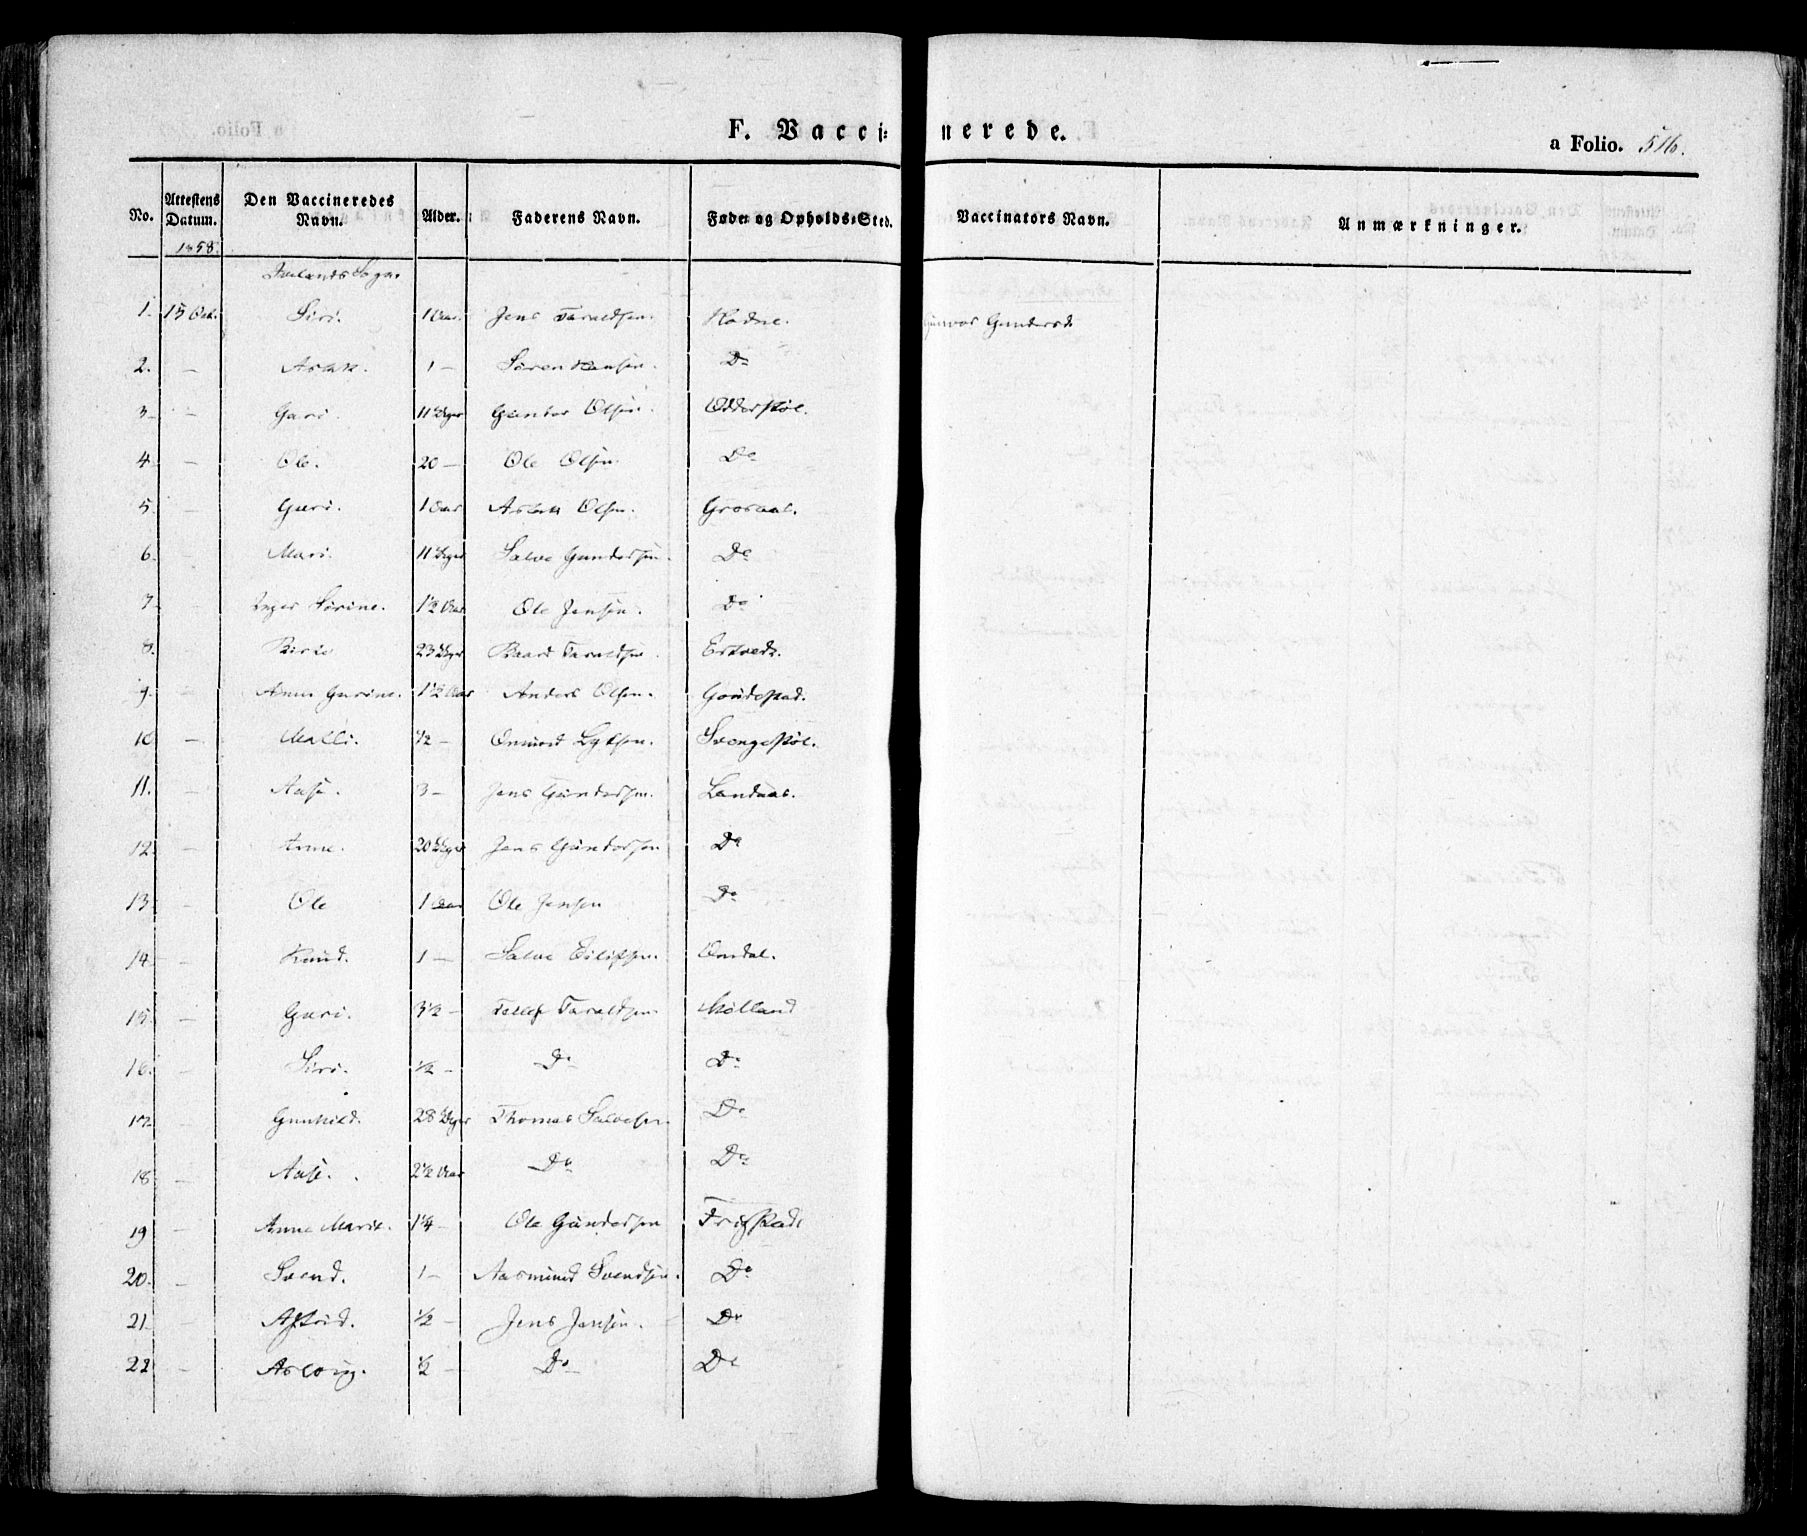 F. Vacci= nerede.
a Folio. 516.
No. Attestens Datum. Den Vaccineredes Navn. Alder. Faderens Navn. Føde= og Opholds=Sted. Vaccinators Navn. Anmærkninger.
1858.
Sogn.
1. 15 Oct. Siri. 1 Aar. Jens Taraldsen. Gunvor Gundersd
2. — Aslak. 1 — Søren Hansen. Do
3 — Guri. 11 Uger Gunder Olsen. Odderstøl.
4 — Ole. 20 — Ole Olsen Do
5 — Guri. 1 Aar Aslak Olsen. Grosaas.
6. — Mari. 11 Uger Salve Gundersen. Do
7 — Inger Sørine. 1½ Aar Ole Jensen. Do
8. — Birte 23 Uger Baard Taraldsen. Ertveds.
9. — Anne Gurine. 1½ Aar Anders Olsen.
10 — Malli. ½ — Omund Svengestøl.
11. — Aase. 3 — Jens Gundersen. Landaas.
12. — Anne. 20 Uger Jens Gundersen Do
13. — Ole 1 Aar Ole Jensen Do
14 — Knud. 1 — Salve Eilifsen. Omdal.
15. — Guri. 3½ — Tellef Taraldsen Mølland
16. — Siri. ½ — Do Do
17. — Gunhild. 28 Uger Thomas Salvesen. Do
18 — Aase. 2½ Aar Do Do
19 — Anne Marie. 1¼ — Ole Gundersen Frigstad
20. — Svend. 1 — Aasmund Svendsen. Do
21 — Astrid. ½ — Jens Jensen. Do
22 — Aslaug. ½ — Do Do